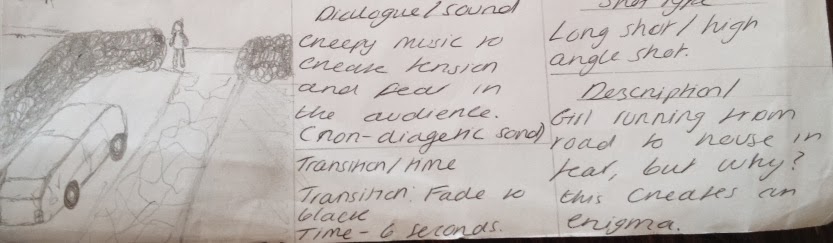 Dialogue/sound
creepy music to
create tension
and fear in
the audience.
(non-diagetic sond)
Transition/time
Transition: Fade to
black
Time - 6 seconds.
Shot type
Long shot/high
angle shot.
Description/
Girl running from
road to house in
fear, but why?
this creates an
enigma.